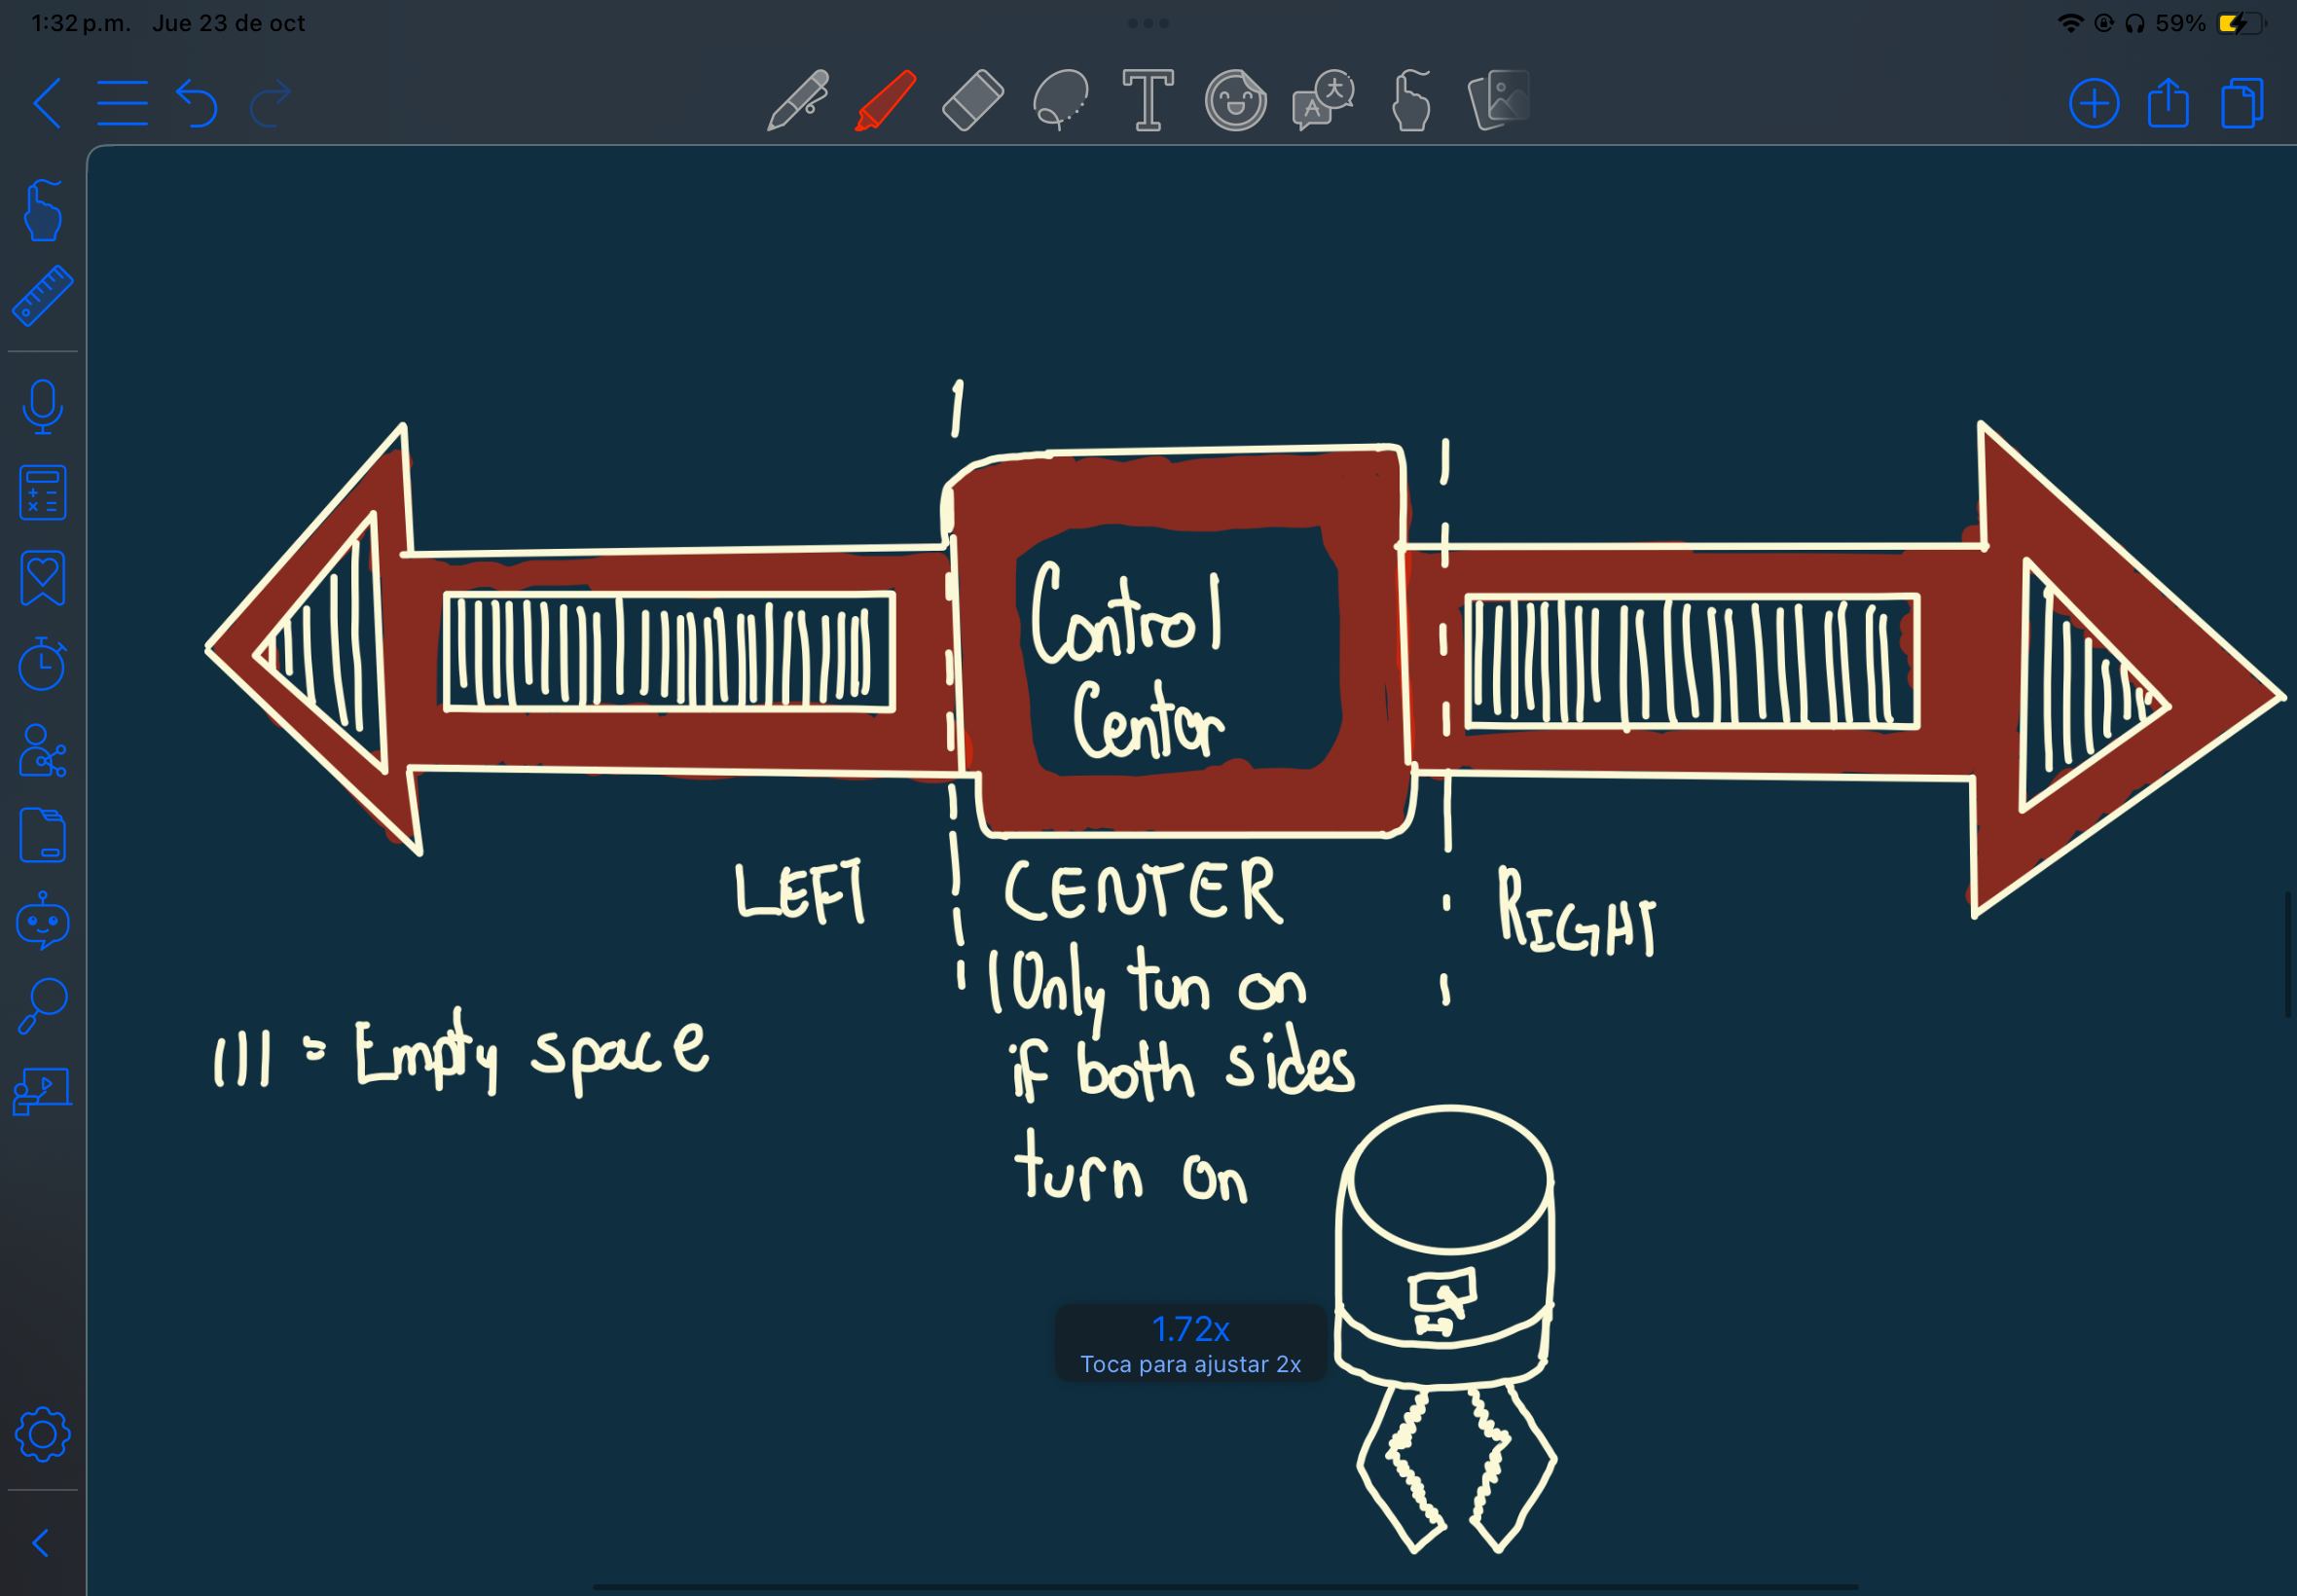 1:32 p.m. Jue 23 de oct
59%
Control
Center
LEFT
CENTER
RIGHT
(Only turn on
if both sides
turn on
||| = Empty space
1.72x
Toca para ajustar 2x